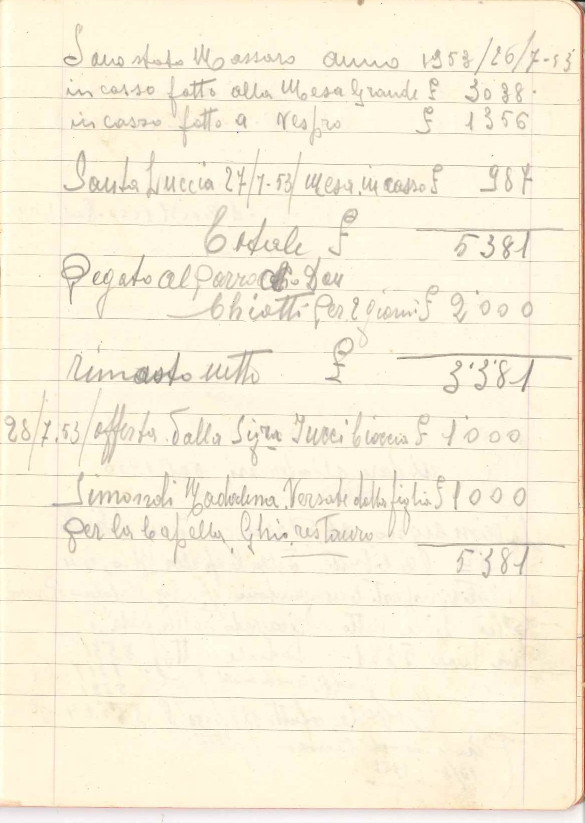 Sono stato Massaro anno 1953/26/7-53
incasso fatto alla Mesa Grande £ 3038-
incasso fatto a Vespro £ 1356
Santa Luccia 27/7-53/ Mesa incasso £ 987
Totale £ 5381
Pegato al Parrochio Don
Chiotti per 2 giorni £ 2'000
rimasto netto £ 3'381
28/7.53/ offerta dalla Sigra £ 1'000
Madalena Versate dalla figlia £ 1000
per la Capella Ghio restauro
5'381